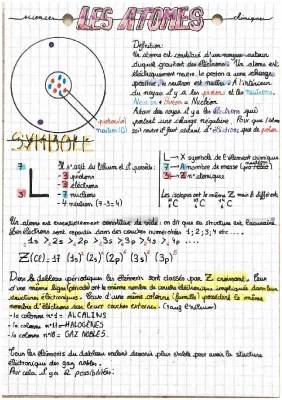 sciences
LES ATOMES
chimiques
Définition:
Un atome est constitué d'un noyau autour
duquel gravitent des électrons. Un atome est
électriquement neutre, le proton a une charge
positive, le neutron est neutre. À l'intérieur
du noyau il y a les protons et les neutrons.
Neutron + Proton = Nucléon
Autour des noyau il y a les électrons qui
portent une charge négative. Pour que l'atome
soit neutre il faut autant d'électrons que de protons.
proton (+)
neutron (0)
SYMBOLE
7
L
3
Il s'agit du lithium et il possède:
- 3 protons
- 3 électrons
- 7 nucléons
- 4 neutrons (7-3=4)
X symbole de l'élément chimique
A nombre de masse
Z n° atomique
Les isotopes ont le même Z mais A différent
C C C
Un atome est essentiellement constitué de vide: on dit que sa structure est lacunaire.
Les électrons sont répartis dans des couches numérotées 1; 2; 3; 4 etc...
1s > 2s > 2p > 3s > 3p > 4s > 4p ...
Z(Cl=17) (1s)² (2s)² (2p)⁶ (3s)² (3p)⁵
Dans le tableau périodique les éléments sont classés par Z croissant. Ceux
d'une même ligne (période) ont le même nombre de couches électroniques impliquées dans leur
structures électroniques. Ceux d'une même colonne (famille) possèdent le même
nombre d'électrons sur leurs couches externes.
- la colonne n°1 = ALCALINS
- la colonne n°17 = HALOGÈNES
- la colonne n°18 = GAZ NOBLES.
Tous les éléments du tableau veulent devenir plus stable pour avoir la structure
électronique des gaz nobles.
Par cela il y a 2 possibilités: